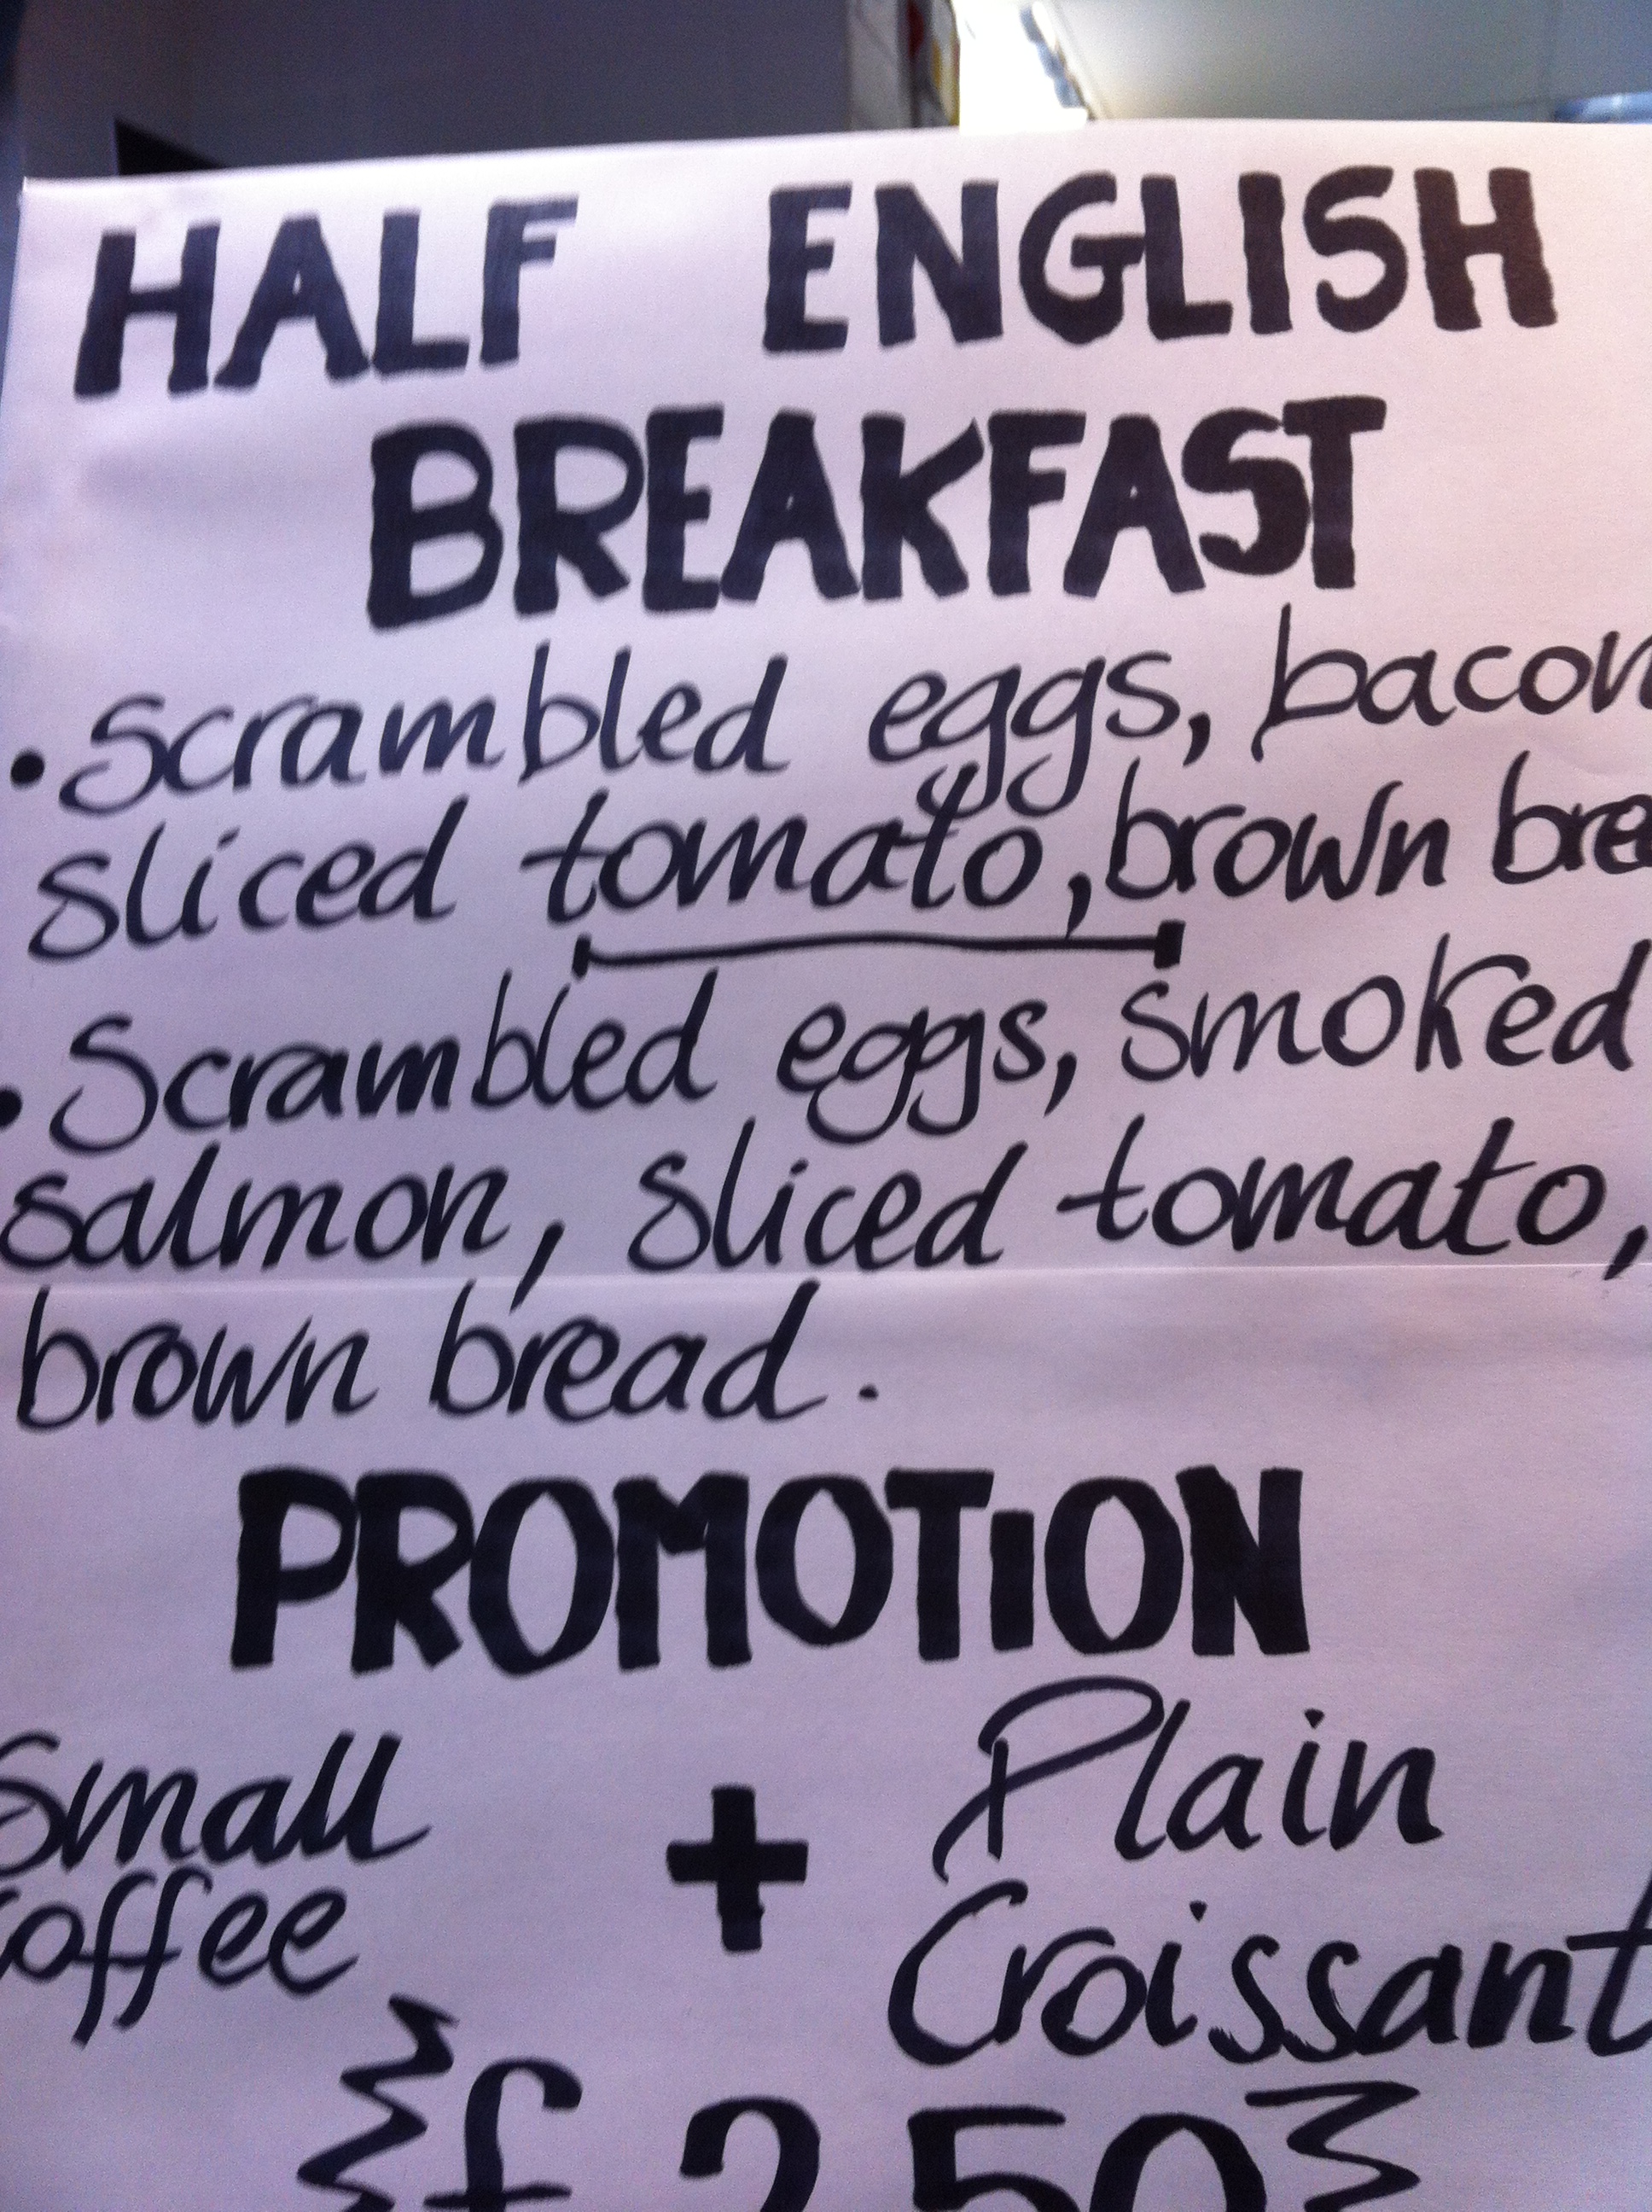 HALF ENGLISH
BREAKFAST
• Scrambled eggs, bacon
sliced tomato, brown brea
• Scrambled eggs, smoked
salmon, sliced tomato,
brown bread.
PROMOTION
Small + Plain
Coffee Croissant
£ 2.50